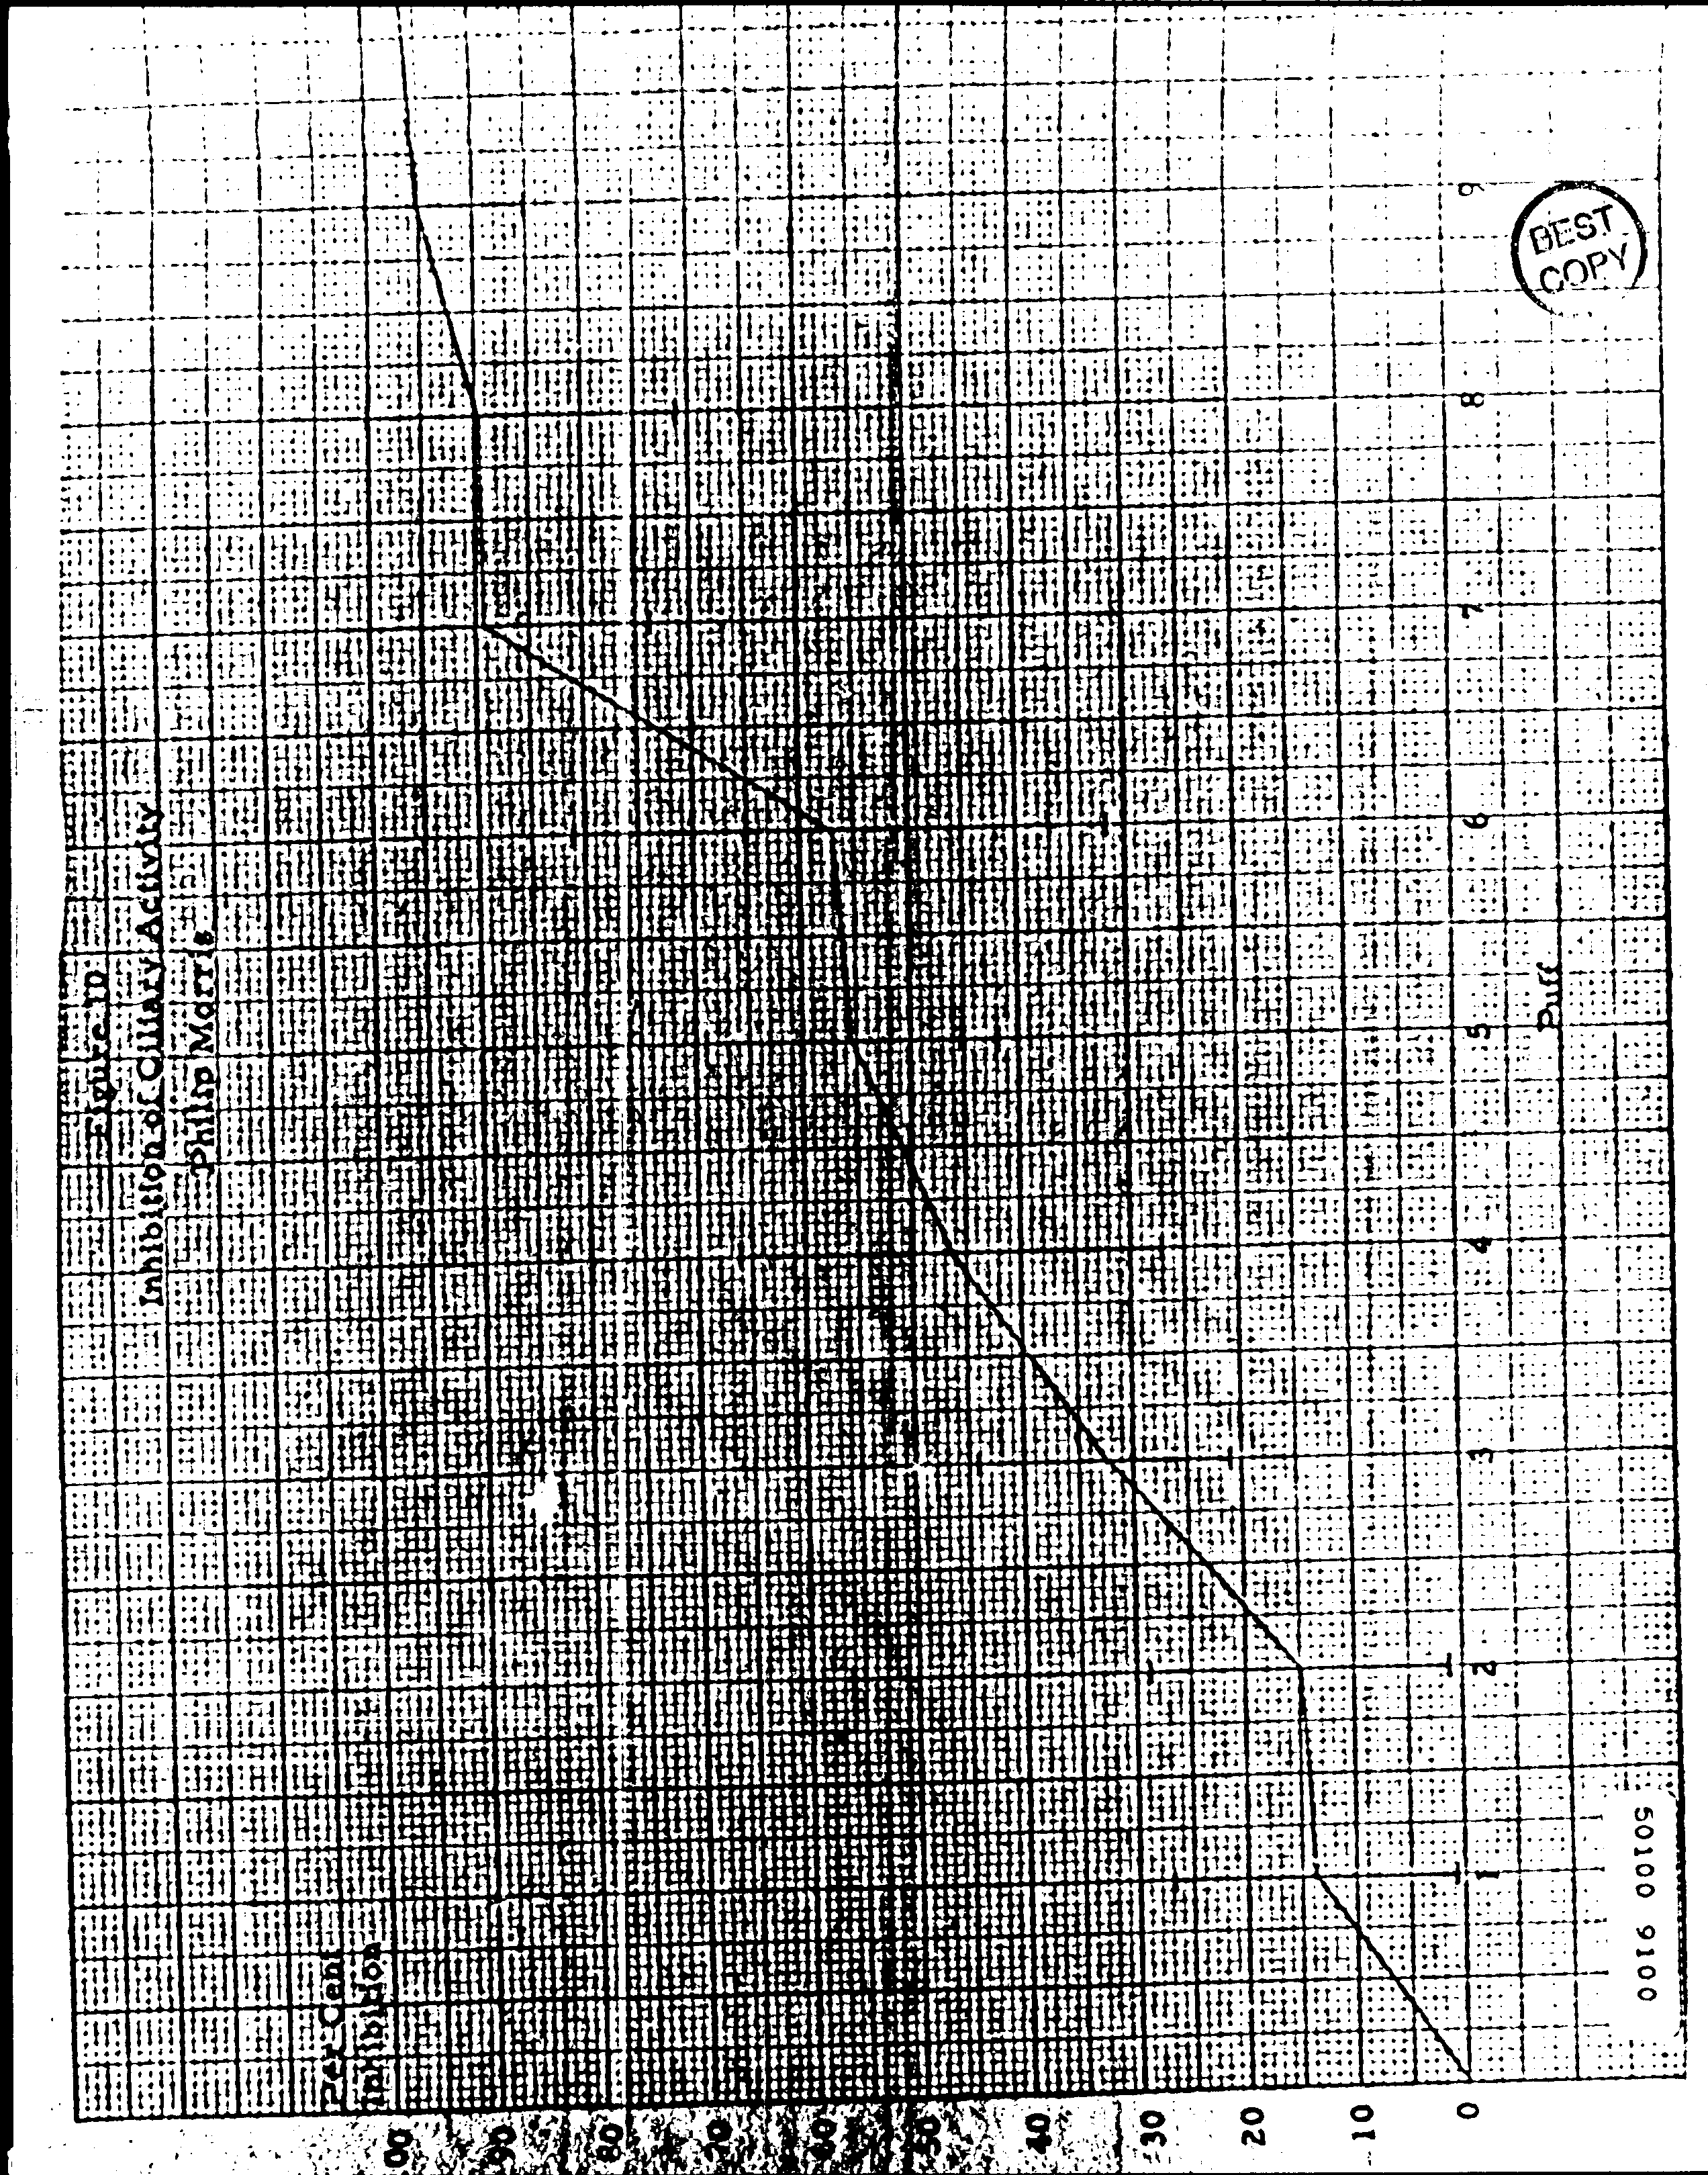 Figure 10
Inhibition of Ciliary Activity
Philip Morris
Per Cent
Inhibition
00
90
80
70
60
50
40
30
20
10
0
1
2
3
4
5
6
7
8
9
Puff
BEST
COPY
50100 9100